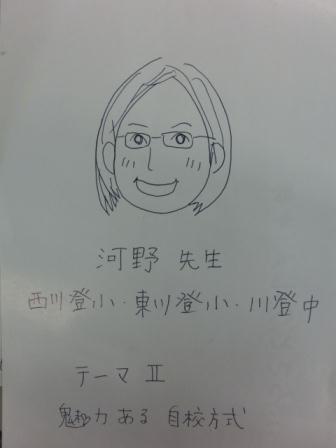 河野 先生
西川登小・東川登小・川登中
テーマ Ⅱ
魅力 ある 自校方式